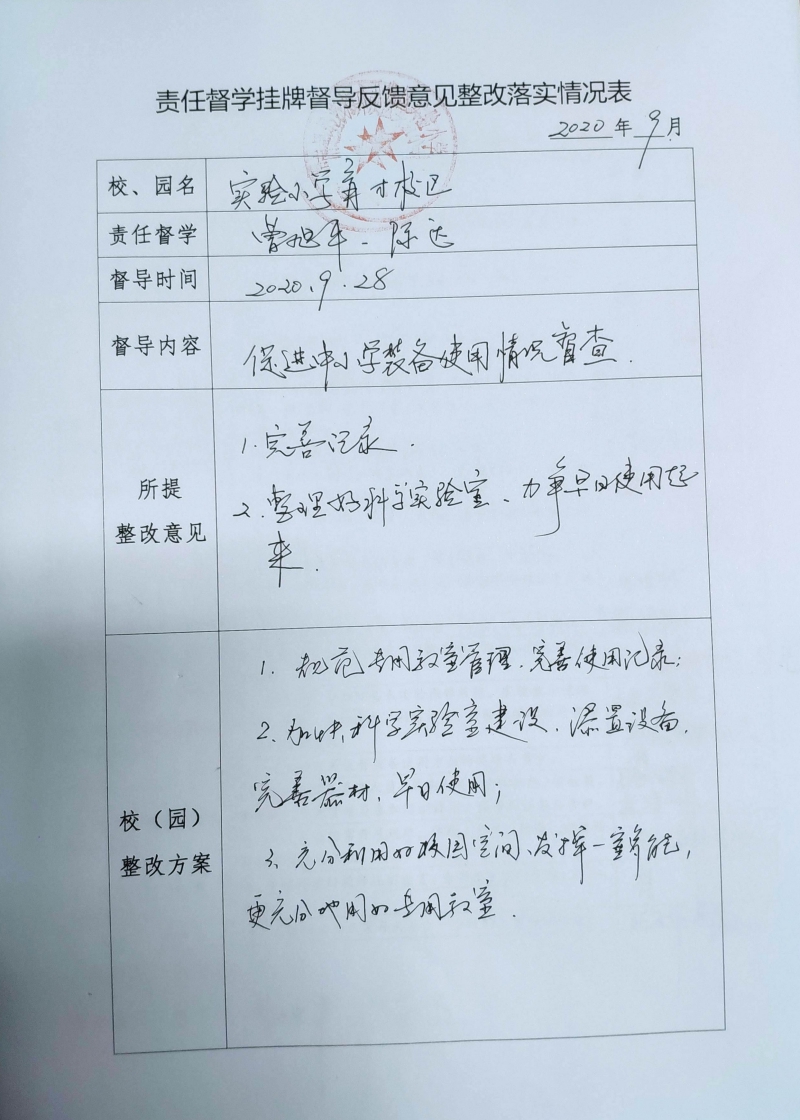 责任督学挂牌督导反馈意见整改落实情况表
2020 年 9 月
校、园名 实验小学育才校区
责任督学 曾旭平 陈达
督导时间 2020.9.28
督导内容 促进中小学装备使用情况督查.
所提
整改意见
1.完善记录.
2.整理好科学实验室、力争早日使用起
来.
校（园）
整改方案
1. 规范专用教室管理.完善使用记录;
2、加快科学实验室建设、添置设备,
完善器材、早日使用;
3、充分利用好校园空间、发挥一室多能,
更充分地用好专用教室.